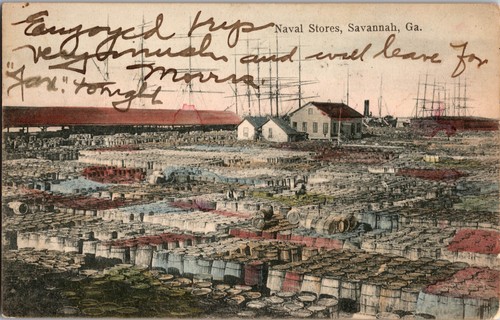 Naval Stores, Savannah, Ga.
Enjoyed trip
very much and will leave for
"Jax." tonight Morris.